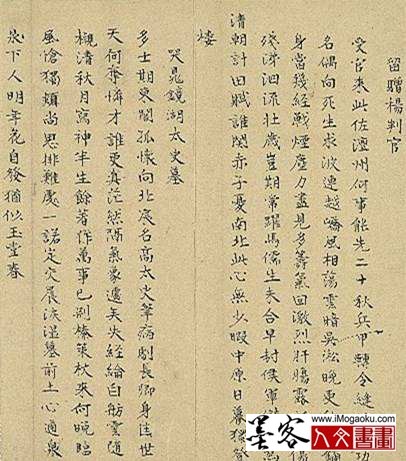 留贈楊判官
受官來此佐澶州何事能先二十秋兵甲縣令縫功
名偶向死生求波連趙風相蕩雲暗吳淞晚更
身當幾經戰塵力盡見多籌氣回激烈肝腸露
殘涕泗流壯歲豈期常躍馬儒生未合早封侯軍
清朝計田賦誰閔赤子憂南北此心無少暇中原日暮獨登
樓
哭晁鏡湖太史墓
多士期東閣孤懷向北辰名高太史筆病劇長卿身住世
天何奪憐才誰更真茫然隔氣象遽矣失經綸白舫雲隨
櫬清秋月寫神半生餘著作萬事已荆榛策杖來何晚臨
風愴獨頻尚思排難處一諾定災晨淚濕墓前土心過泉
臺下人明年花自發猶似玉堂春
www.iMogaoku.com
墨客